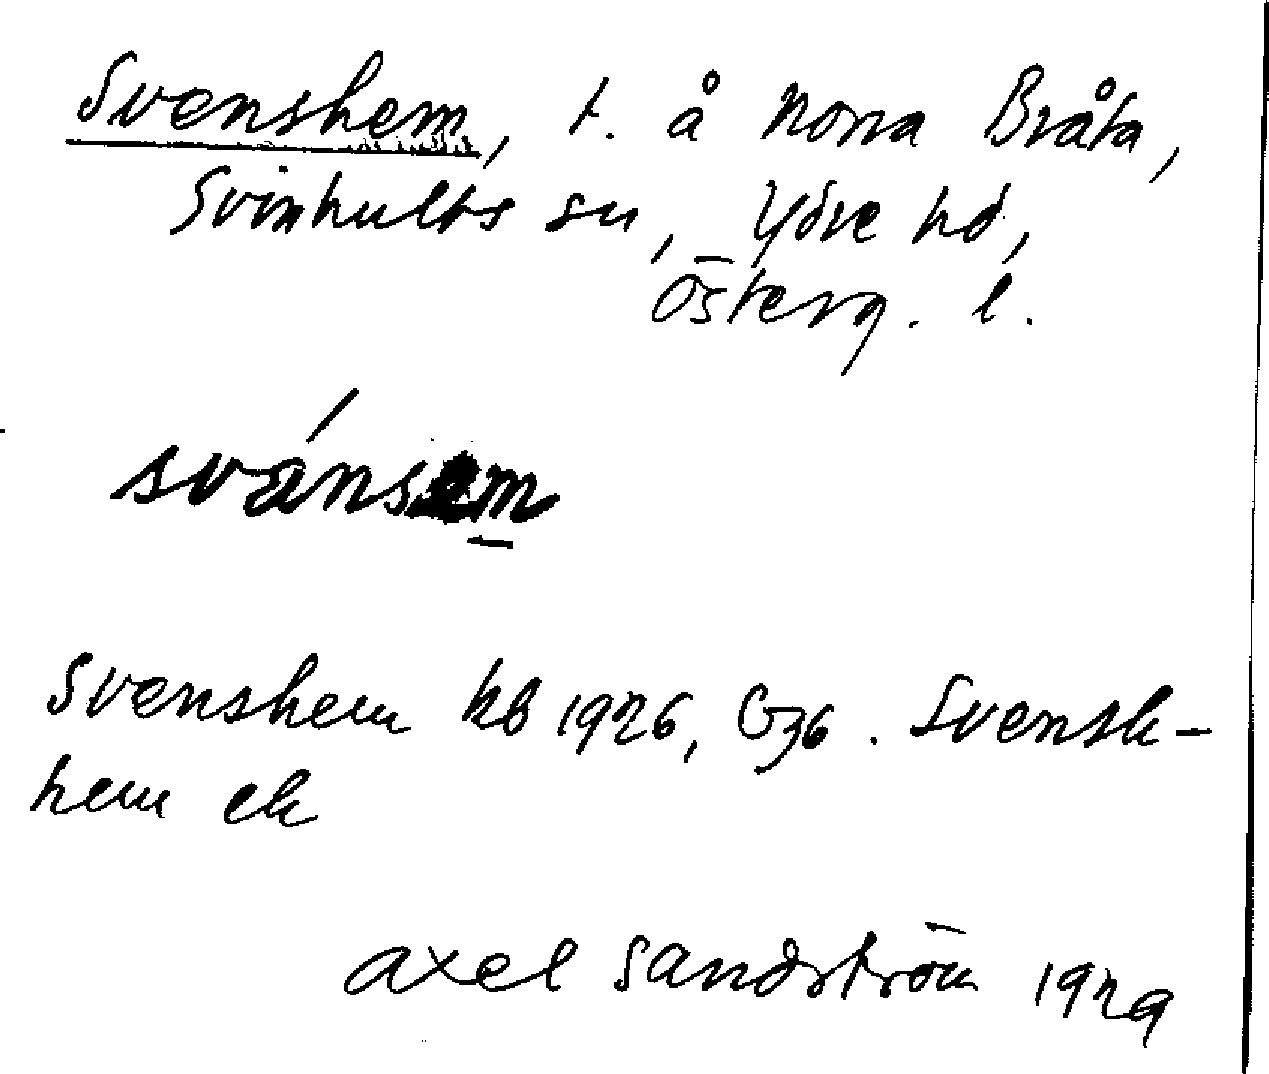 Svenshem, t. å Norra Bråta,
Svinhults sn, Ydre hd,
Österg. l.
svánsem
Svenshem kb 1926, G36. Svensk-
hem ek
Axel Sandström 1929